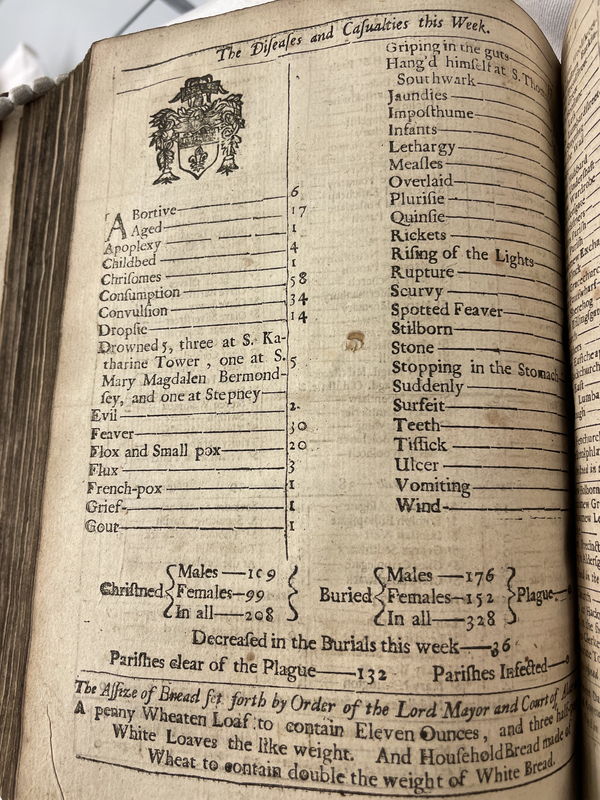 The Diſeaſes and Caſualties this Week.
ABortive 6
Aged 17
Apoplexy 1
Childbed 4
Chriſomes 1
Conſumption 58
Convulſion 34
Dropſie 14
Drowned 5, three at S. Ka-
tharine Tower, one at S.
Mary Magdalen Bermond-
ſey, and one at Stepney 5
Evil 2
Feaver 30
Flox and Small pox 20
Flux 3
French-pox 1
Grief 1
Gout 1
Griping in the guts
Hang'd himſelf at S. Thom
Southwark
Jaundies
Impoſthume
Infants
Lethargy
Meaſles
Overlaid
Pluriſie
Quinſie
Rickets
Riſing of the Lights
Rupture
Scurvy
Spotted Feaver
Stilborn
Stone
Stopping in the Stomach
Suddenly
Surfeit
Teeth
Tiſſick
Ulcer
Vomiting
Wind
Chriſtned Males—109
Females—99
In all—208
Buried Males—176
Females—152
In all—328
Plague
Decreaſed in the Burials this week—36
Pariſhes clear of the Plague—132 Pariſhes Infected
The Aſſize of Bread ſet forth by Order of the Lord Mayor and Court of
A penny Wheaten Loaf to contain Eleven Ounces, and three half
White Loaves the like weight. And Houſhold Bread made of
Wheat to contain double the weight of White Bread.